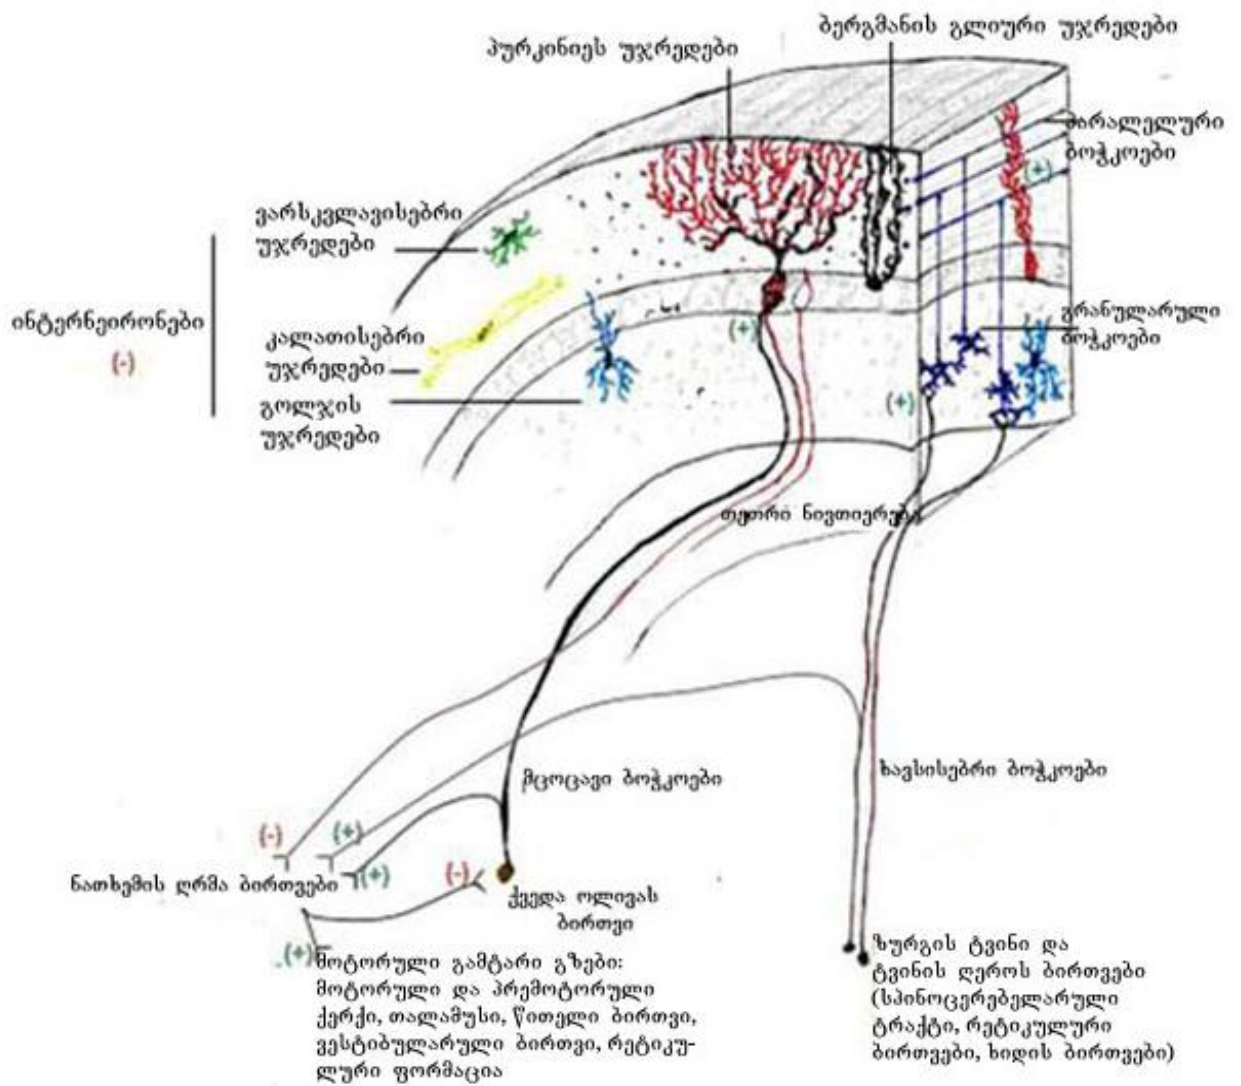 პურკინიეს უჯრედები
ბერგმანის გლიური უჯრედები
პარალელური
ბოჭკოები
(+)
ვარსკვლავისებრი
უჯრედები
ინტერნეირონები
(-)
კალათისებრი
უჯრედები
გოლჯის
უჯრედები
(+)
გრანულარული
ბოჭკოები
(+)
თეთრი ნივთიერება
მცოცავი ბოჭკოები
ხავსისებრი ბოჭკოები
(-)
(+)
ნათხემის ღრმა ბირთვები
(+)
(-)
ქვედა ოლივას
ბირთვი
(+)
მოტორული გამტარი გზები:
მოტორული და პრემოტორული
ქერქი, თალამუსი, წითელი ბირთვი,
ვესტიბულარული ბირთვი, რეტიკუ-
ლური ფორმაცია
ზურგის ტვინი და
ტვინის ღეროს ბირთვები
(სპინოცერებელარული
ტრაქტი, რეტიკულური
ბირთვები, ხიდის ბირთვები)